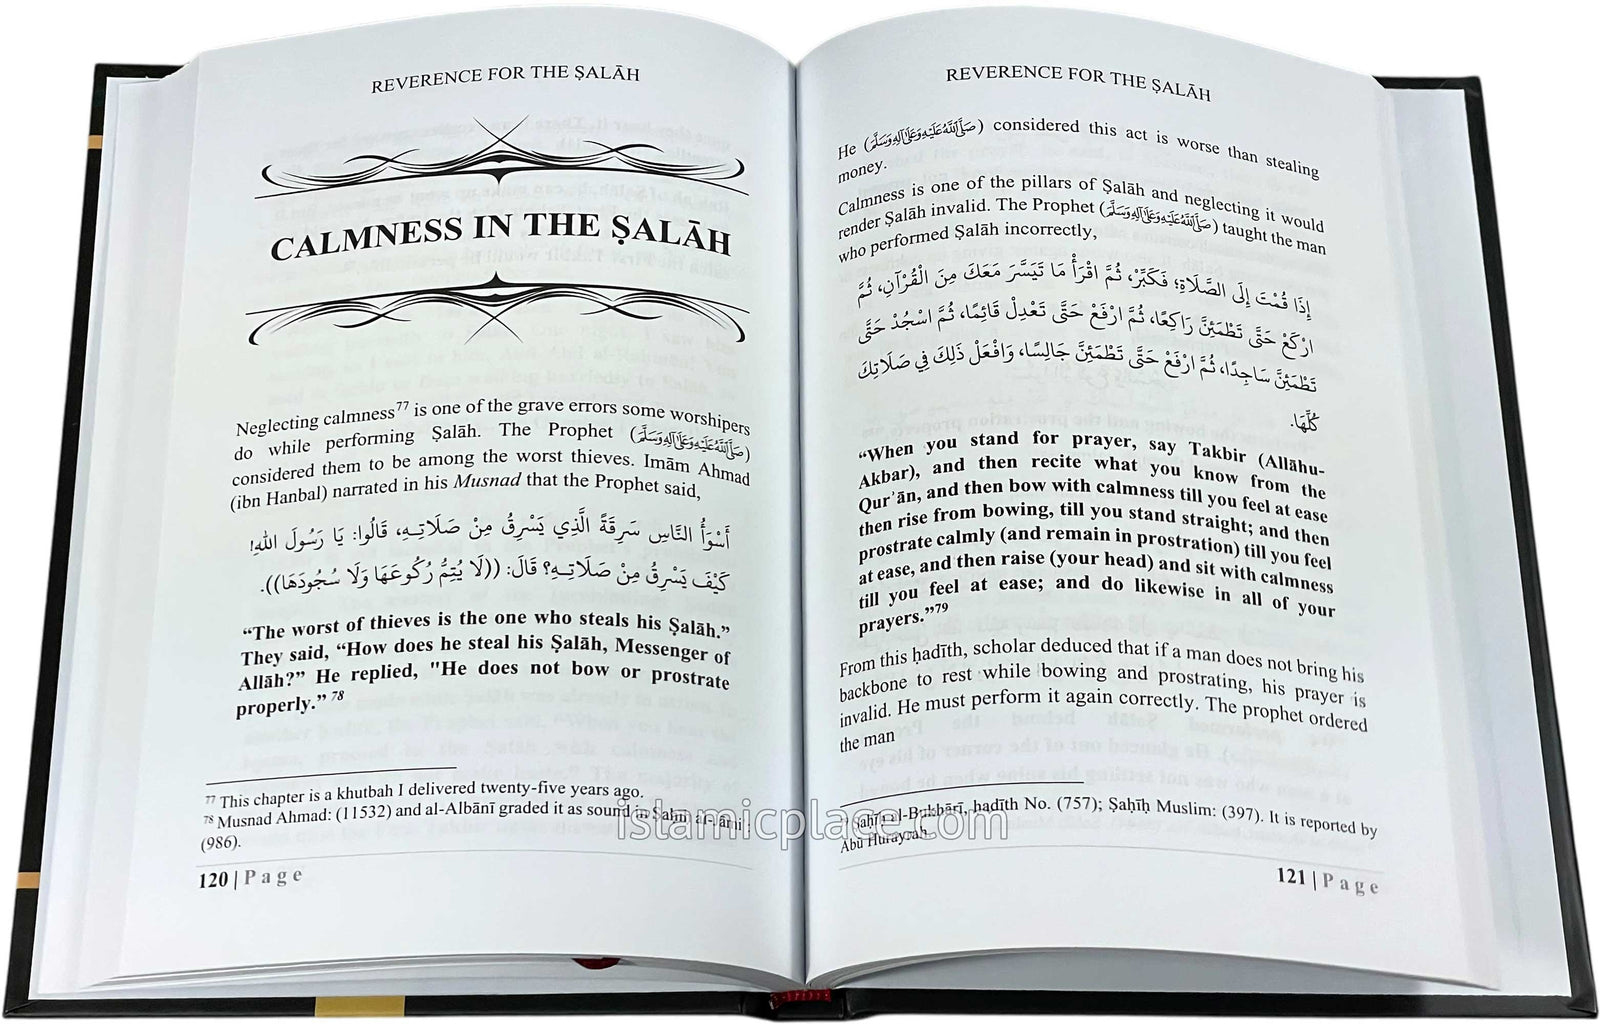 REVERENCE FOR THE ṢALĀH
CALMNESS IN THE ṢALĀH
Neglecting calmness⁷⁷ is one of the grave errors some worshipers
do while performing Ṣalāh. The Prophet (صَلَّى اللَّهُ عَلَيْهِ وَعَلَى آلِهِ وَسَلَّمَ)
considered them to be among the worst thieves. Imām Ahmad
(ibn Hanbal) narrated in his Musnad that the Prophet said,
أَسْوَأُ النَّاسِ سَرِقَةً الَّذِي يَسْرِقُ مِنْ صَلَاتِهِ، قَالُوا: يَا رَسُولَ اللهِ!
كَيْفَ يَسْرِقُ مِنْ صَلَاتِهِ؟ قَالَ: ((لَا يُتِمُّ رُكُوعَهَا وَلَا سُجُودَهَا)).
“The worst of thieves is the one who steals his Ṣalāh.”
They said, “How does he steal his Ṣalāh, Messenger of
Allāh?” He replied, "He does not bow or prostrate
properly.” ⁷⁸
⁷⁷ This chapter is a khutbah I delivered twenty-five years ago.
⁷⁸ Musnad Ahmad: (11532) and al-Albānī graded it as sound in Ṣaḥīḥ al-Jāmiʿ:
(986).
120 | Page
REVERENCE FOR THE ṢALĀH
He (صَلَّى اللَّهُ عَلَيْهِ وَعَلَى آلِهِ وَسَلَّمَ) considered this act is worse than stealing
money.
Calmness is one of the pillars of Ṣalāh and neglecting it would
render Ṣalāh invalid. The Prophet (صَلَّى اللَّهُ عَلَيْهِ وَعَلَى آلِهِ وَسَلَّمَ) taught the man
who performed Ṣalāh incorrectly,
إِذَا قُمْتَ إِلَى الصَّلَاةِ؛ فَكَبِّرْ، ثُمَّ اقْرَأْ مَا تَيَسَّرَ مَعَكَ مِنَ الْقُرْآنِ، ثُمَّ
ارْكَعْ حَتَّى تَطْمَئِنَّ رَاكِعًا، ثُمَّ ارْفَعْ حَتَّى تَعْدِلَ قَائِمًا، ثُمَّ اسْجُدْ حَتَّى
تَطْمَئِنَّ سَاجِدًا، ثُمَّ ارْفَعْ حَتَّى تَطْمَئِنَّ جَالِسًا، وَافْعَلْ ذَلِكَ فِي صَلَاتِكَ
كُلِّهَا.
“When you stand for prayer, say Takbir (Allāhu-
Akbar), and then recite what you know from the
Qurʾān, and then bow with calmness till you feel at ease
then rise from bowing, till you stand straight; and then
prostrate calmly (and remain in prostration) till you feel
at ease, and then raise (your head) and sit with calmness
till you feel at ease; and do likewise in all of your
prayers.”⁷⁹
From this ḥadīth, scholar deduced that if a man does not bring his
backbone to rest while bowing and prostrating, his prayer is
invalid. He must perform it again correctly. The prophet ordered
the man
Ṣaḥīḥ al-Bukhārī, ḥadīth No. (757); Ṣaḥīḥ Muslim: (397). It is reported by
Abū Hurayrah.
121 | Page
islamicplace.com